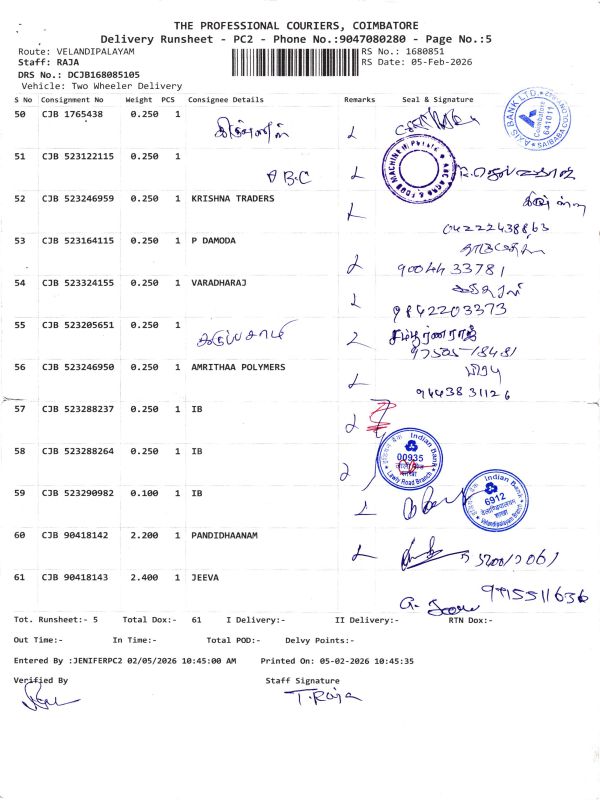 THE PROFESSIONAL COURIERS, COIMBATORE
Delivery Runsheet - PC2 - Phone No.:9047080280 - Page No.:5
Route: VELANDIPALAYAM RS No.: 1680851
Staff: RAJA RS Date: 05-Feb-2026
DRS No.: DCJB168085105
Vehicle: Two Wheeler Delivery
S No Consignment No Weight PCS Consignee Details Remarks Seal & Signature
50 CJB 1765438 0.250 1
AXIS BANK LTD. Coimbatore 641011
51 CJB 523122115 0.250 1 ABC
52 CJB 523246959 0.250 1 KRISHNA TRADERS
04222438863
53 CJB 523164115 0.250 1 P DAMODA
9004433781
54 CJB 523324155 0.250 1 VARADHARAJ
9842203373
55 CJB 523205651 0.250 1 கருப்பசாமி
97505 18481
56 CJB 523246950 0.250 1 AMRITHAA POLYMERS
9443831126
57 CJB 523288237 0.250 1 IB
58 CJB 523288264 0.250 1 IB
Indian Bank 00935 Lawly Road Branch
59 CJB 523290982 0.100 1 IB
Indian Bank 6912 Velandipalayam Branch
60 CJB 90418142 2.200 1 PANDIDHAANAM
61 CJB 90418143 2.400 1 JEEVA
9915511636
Tot. Runsheet:- 5 Total Dox:- 61 I Delivery:- II Delivery:- RTN Dox:-
Out Time:- In Time:- Total POD:- Delvy Points:-
Entered By :JENIFERPC2 02/05/2026 10:45:00 AM Printed On: 05-02-2026 10:45:35
Verified By Staff Signature
T.Raja